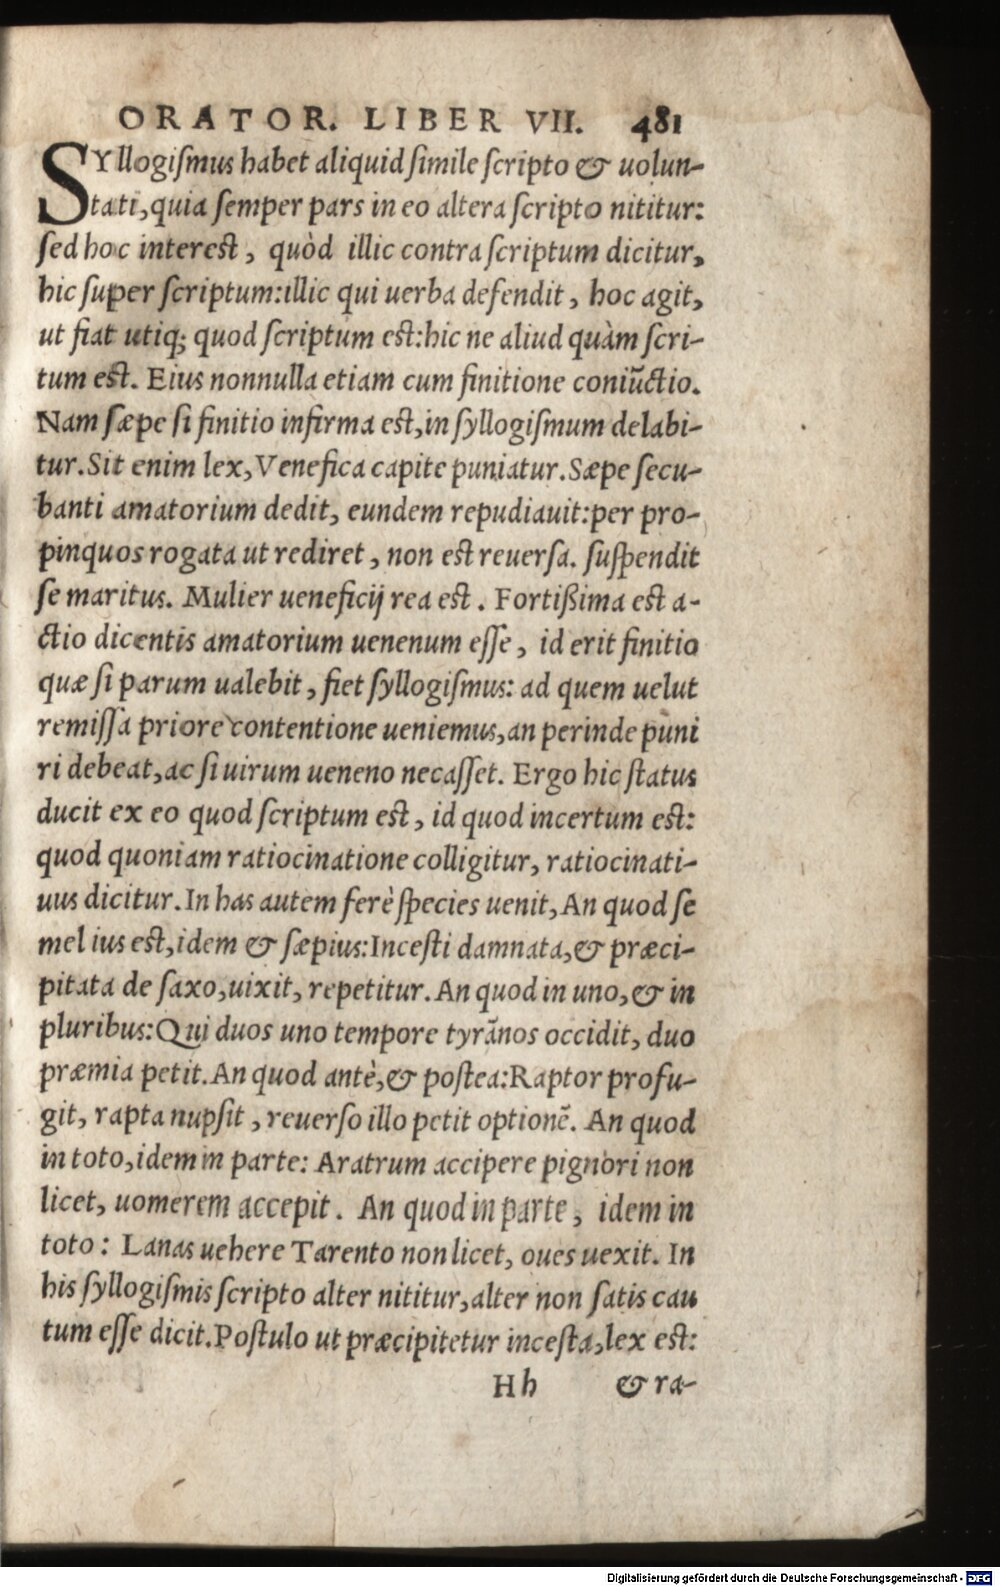 ORATOR. LIBER VII. 481
SYllogiſmus habet aliquid ſimile ſcripto & uolun-
tati, quia ſemper pars in eo altera ſcripto nititur:
ſed hoc intereſt, quòd illic contra ſcriptum dicitur,
hic ſuper ſcriptum: illic qui uerba defendit, hoc agit,
ut fiat utiq; quod ſcriptum eſt: hic ne aliud quàm ſcri-
tum eſt. Eius nonnulla etiam cum finitione coniũctio.
Nam ſæpe ſi finitio infirma eſt, in ſyllogiſmum delabi-
tur. Sit enim lex, Venefica capite puniatur. Sæpe ſecu-
banti amatorium dedit, eundem repudiauit: per pro-
pinquos rogata ut rediret, non eſt reuerſa. ſuſpendit
ſe maritus. Mulier ueneficij rea eſt. Fortißima eſt a-
ctio dicentis amatorium uenenum eſſe, id erit finitio
quæ ſi parum ualebit, fiet ſyllogiſmus: ad quem uelut
remiſſa priore contentione ueniemus, an perinde puni
ri debeat, ac ſi uirum ueneno necaſſet. Ergo hic ſtatus
ducit ex eo quod ſcriptum eſt, id quod incertum eſt:
quod quoniam ratiocinatione colligitur, ratiocinati-
uus dicitur. In has autem ferè ſpecies uenit, An quod ſe
mel ius eſt, idem & ſæpius: Inceſti damnata, & præci-
pitata de ſaxo, uixit, repetitur. An quod in uno, & in
pluribus: Qui duos uno tempore tyrãnos occidit, duo
præmia petit. An quod antè, & poſtea: Raptor profu-
git, rapta nupſit, reuerſo illo petit optionẽ. An quod
in toto, idem in parte: Aratrum accipere pignori non
licet, uomerem accepit. An quod in parte, idem in
toto: Lanas uehere Tarento non licet, oues uexit. In
his ſyllogiſmis ſcripto alter nititur, alter non ſatis cau
tum eſſe dicit. Poſtulo ut præcipitetur inceſta, lex eſt:
Hh & ra-
Digitalisierung gefördert durch die Deutsche Forschungsgemeinschaft - DFG